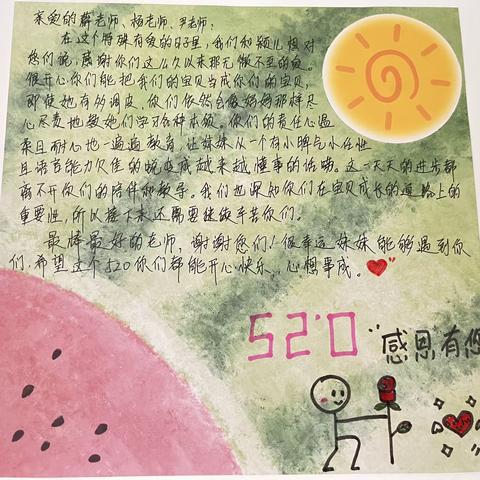 亲爱的薛老师、杨老师、尹老师:
在这个特殊有爱的日子里,我们和颖儿想对
您们说,感谢你们这么久以来那无微不至的爱。
很开心你们能把我们的宝贝当成你们的宝贝,
即使她有多调皮,你们依然会像妈妈那样尽
心尽责地教她们学习各种本领。你们的责任心温
柔且耐心地一遍遍教育,让妹妹从一个有小脾气小任性
且语言能力欠佳的娃变成越来越懂事的话唠。这一天天的进步都
离不开你们的陪伴和教导。我们也深知你们在宝贝成长的道路上的
重要性,所以接下来还需要继续辛苦你们。
最棒最好的老师,谢谢您们!很幸运妹妹能够遇到你
们,希望这个520你们都能开心快乐、心想事成。
52.0
"感恩有您